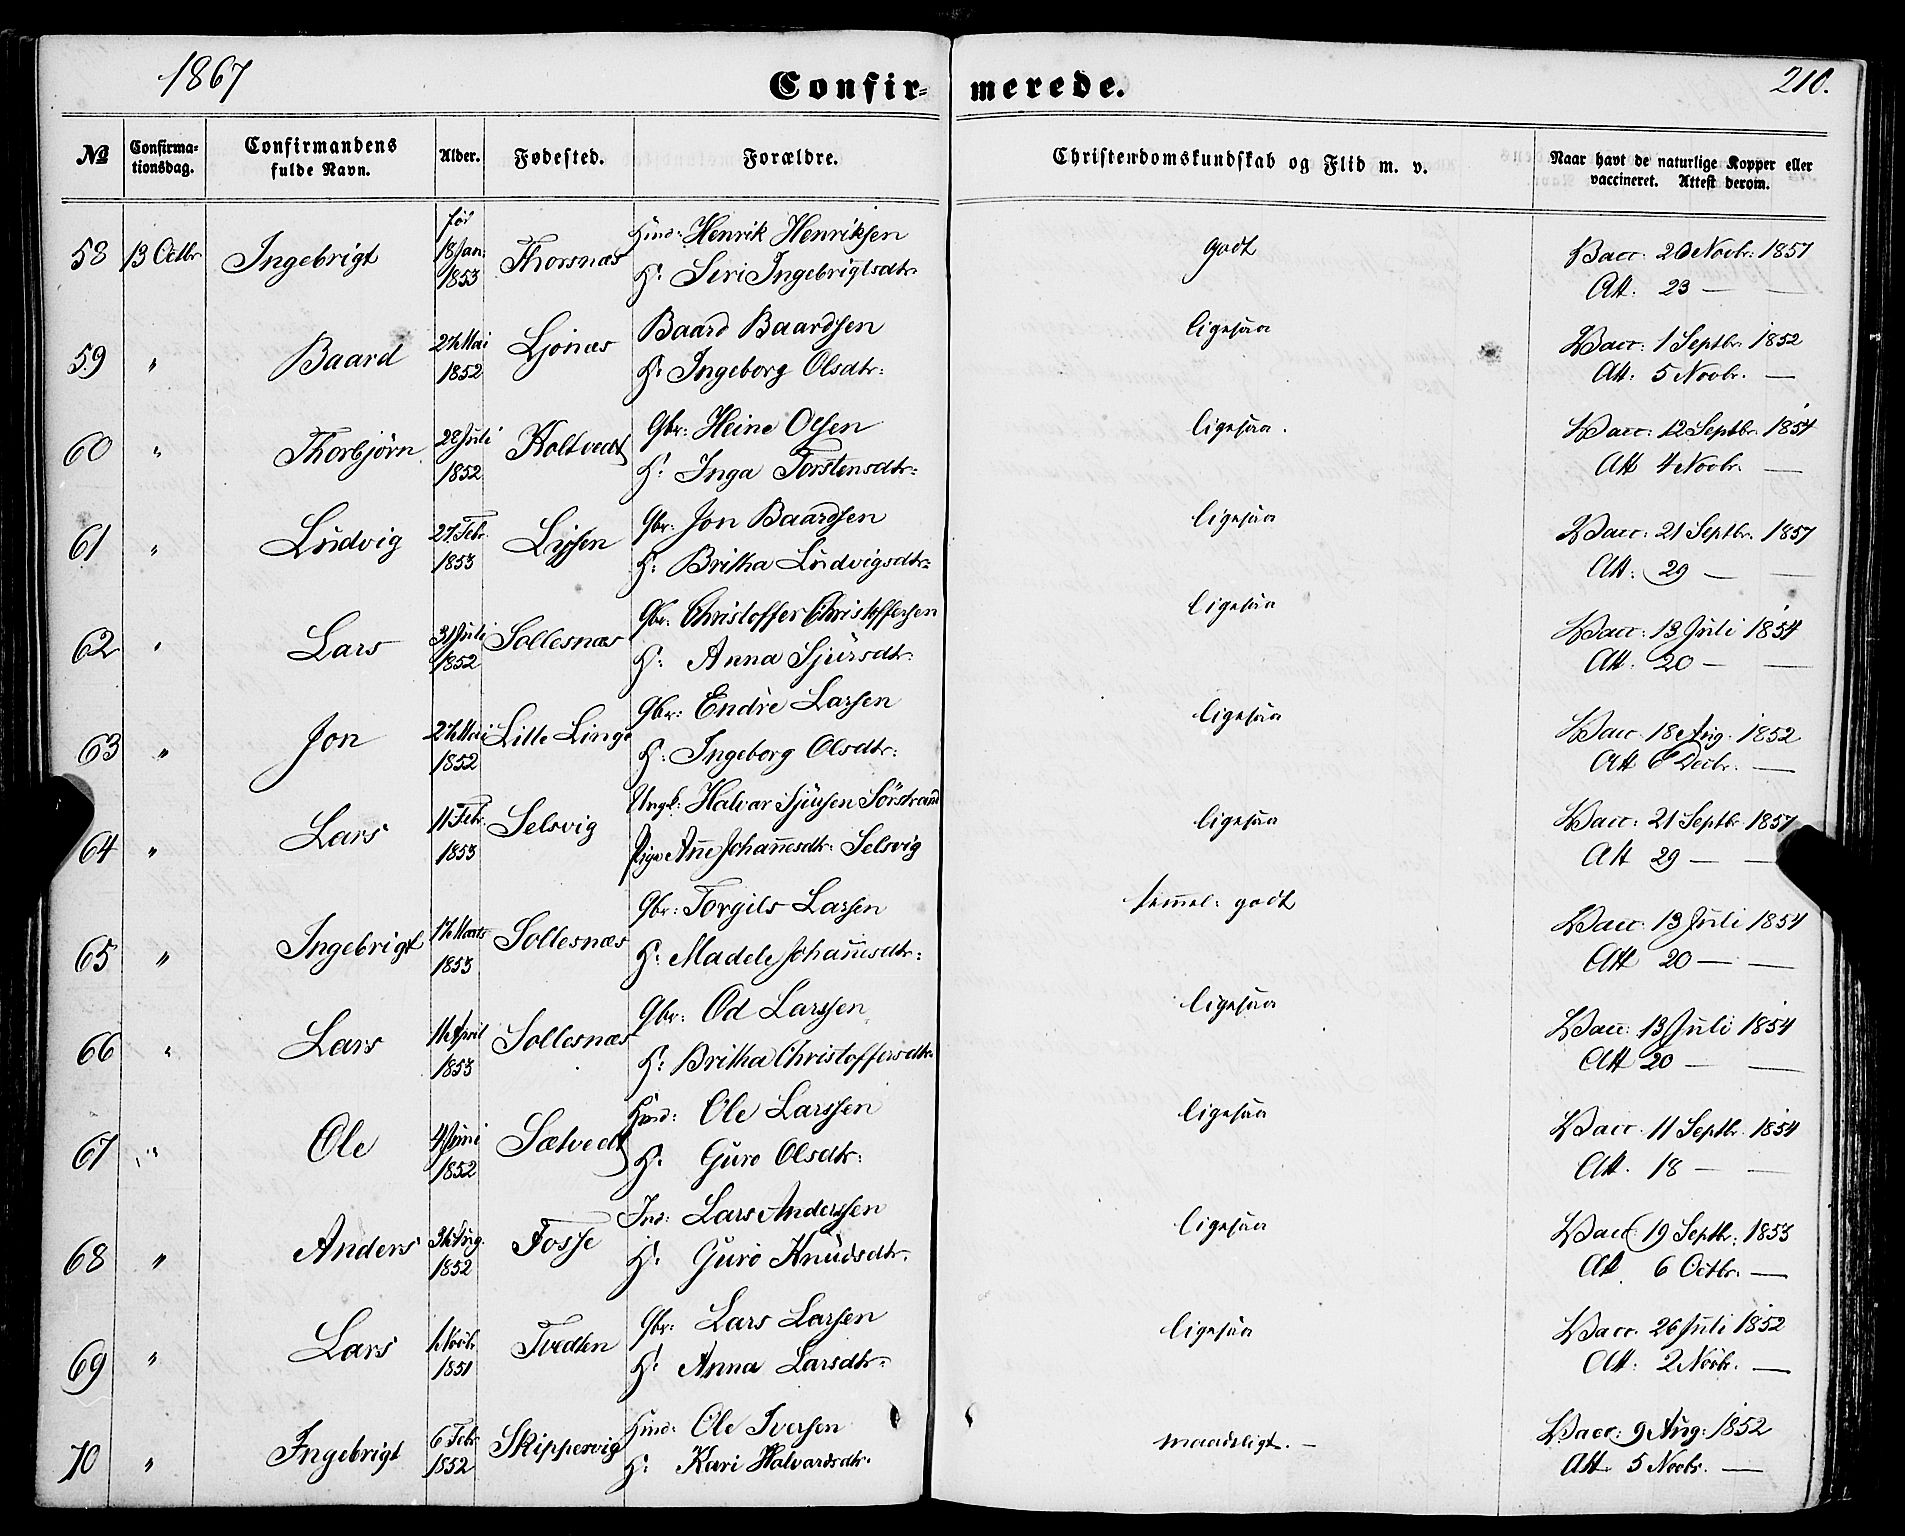 1867
Confir- merede.
210.
No
Confirma-
tionsdag.
Confirmandens
fulde Navn.
Alder.
Fødested.
Forældre.
Christendomskundskab og Flid m. v.
Naar havt de naturlige Kopper eller
vaccineret. Attest derom.
58 13 Octbr Ingebrigt før 18 Jan: 1853 Thorsnæs Huusm: Henrik Henriksen godt Vacc: 20 Novbr: 1857
H: Siri Ingebrigtsdtr. Att: 23 — —
59 " Baard 27 Mai 1852 Ljonæs Baard Baardsen ligesaa Vacc: 1 Septbr. 1852
H: Ingeborg Olsdtr: Att: 5 Novbr. —
60 " Thorbjörn 28 Juli 1852 Koltvedt Gbr: Heine Olsen ligesaa. Vacc: 12 Septbr. 1854
H: Inga Torstensdtr: Att 4 Novbr. —
61 " Ludvig 27 Febr. 1853 Lussen Gbr: Jon Baardsen ligesaa Vacc: 21 Septbr. 1857
H: Britha Ludvigsdtr: Att: 29 — —
62 " Lars 31 Juli 1852 Sollesnæs Gbr: Christoffer Christoffersen ligesaa Vacc: 13 Juli 1854
H: Anna Sjursdtr: Att: 20 — —
63 " Jon 27 Mai 1852 Lille Linge Gbr: Endre Larsen ligesaa Vacc 18 Aug. 1852
H: Ingeborg Olsdtr: Att 6 Decbr. —
64 " Lars 11 Febr. 1853 Selsvig Ungk: Halvar Sjursen Sörstrand ligesaa Vacc: 21 Septbr 1857
Pige Ane Johannesdtr: Selsvig Att 29 — —
65 " Ingebrigt 17 Marts 1853 Sollesnæs Gbr: Torgils Larsen temmel: godt Vacc 13 Juli 1854
H: Madele Johannesdtr: Att 20 — —
66 " Lars 17 April 1853 Sollesnæs Gbr: Od Larssen ligesaa Vacc: 13 Juli 1854
H: Britha Christoffersdtr. Att 20 — —
67 " Ole 4 Juni 1852 Sætvedt Huusm: Ole Larssen ligesaa Vacc. 11 Septbr. 1854
H: Guro Olsdtr: Att. 18 — —
68 " Anders 31 Aug. 1852 Fosse Ind: Lars Anderssen ligesaa Vacc 19 Septbr: 1853
H: Guro Knudsdtr. Att 6 Octbr. —
69 " Lars 1 Novbr. 1851 Tvedten Gbr: Lars Larsen ligesaa Vacc. 26 Juli 1852
H: Anna Larsdtr: Att: 2 Novbr. —
70 " Ingebrigt 6 Febr 1852 Skippervig Huusm: Ole Iversen maadeligt. — Vacc: 9 Aug: 1852
H: Kari Halvardsdtr. Att 5 Novbr. —